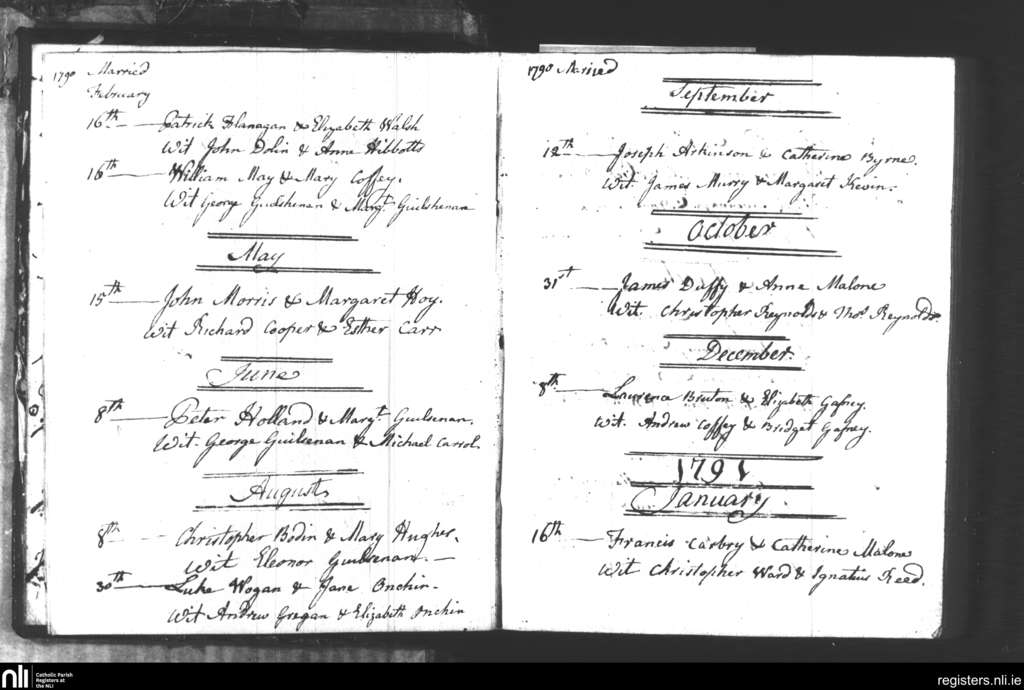 1790 Married
February
16th Patrick Flanagan & Elizabeth Walsh
Wit John Dolin & Anne Hibbotts
16th William May & Mary Coffey.
Wit George Guilshenan & Margt Guilshenan
May
15th John Morris & Margaret Hoy.
Wit Richard Cooper & Esther Carr
June
8th Peter Holland & Margt Guilsenan.
Wit George Guilsenan & Michael Carrol
August
8th Christopher Bodin & Mary Hughes.
Wit Eleonor Guilsenan.
30th Luke Wogan & Jane Onchin
Wit Andrew Gregan & Elizabeth Onchin
1790 Married
September
12th Joseph Atkinson & Catherine Byrne.
Wit. James Murry & Margaret Kevin.
October
31st James Duffy & Anne Malone
Wit. Christopher Reynolds & Thos Reynolds.
December.
8th Lawrence Bruton & Elizabeth Gafney.
Wit. Andrew Coffey & Bridget Gafney.
1791
January.
16th Francis Carbry & Catherine Malone
Wit Christopher Ward & Ignatius Reed.
nli Catholic Parish
Registers at
the NLI
registers.nli.ie